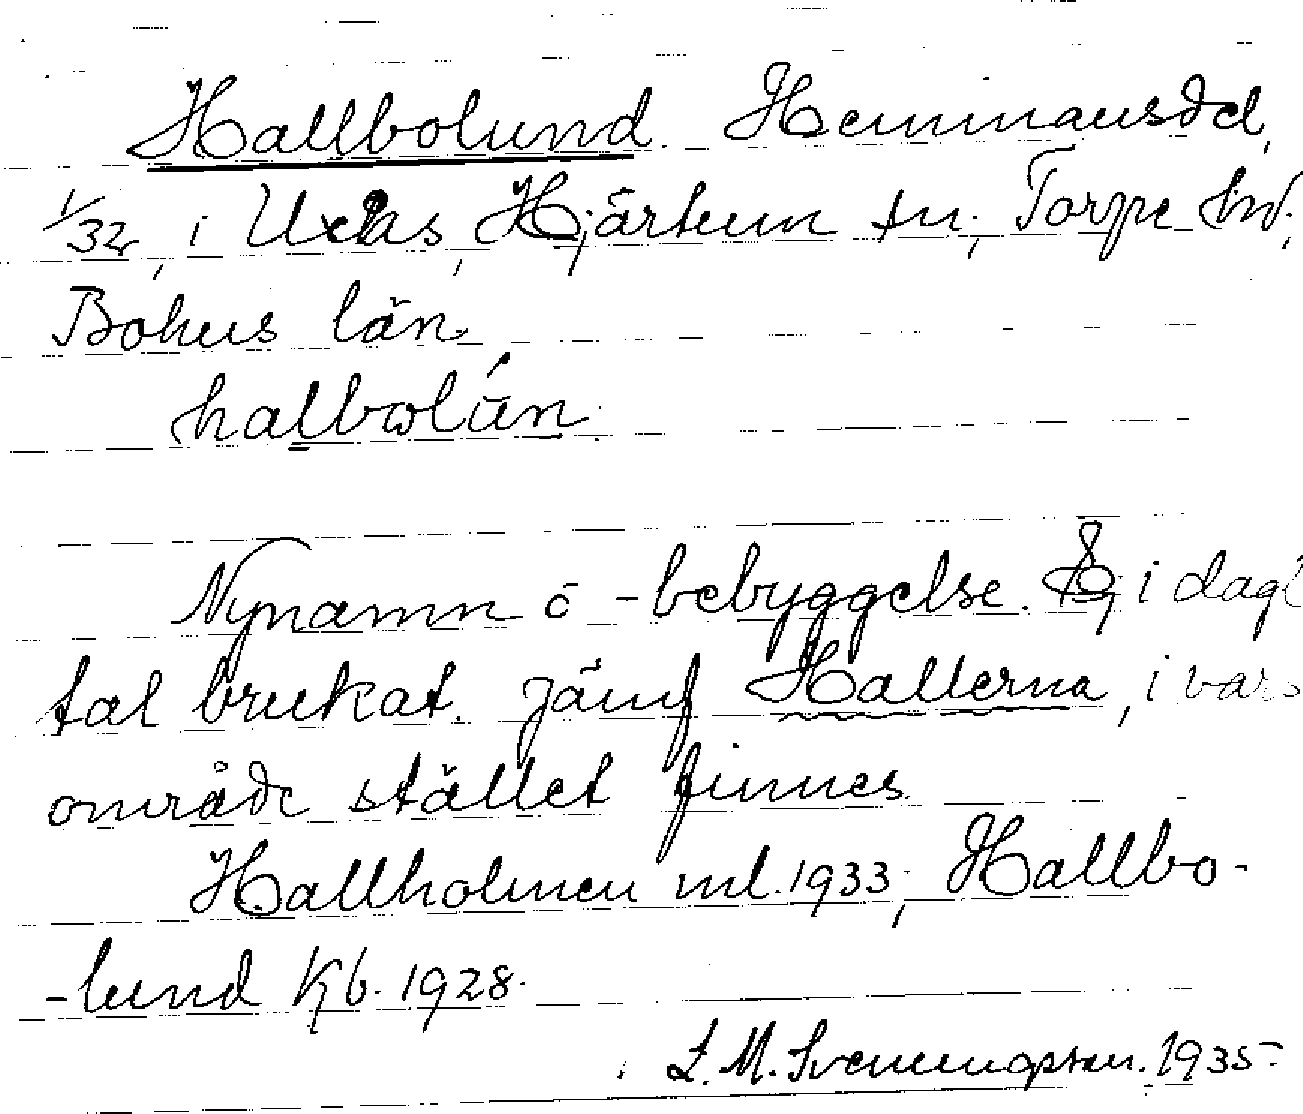 Hallbolund. Hemmansdel,
1/32, i Uxås, Hjärtum sn; Torpe hd;
Bohus län
halbolún
Nynamn o -bebyggelse. Ej i dagl
tal brukat. Jämf Hallerna, i vars
område stället finnes.
Hallholmen ml. 1933; Hallbo-
-lund Kb. 1928.
L. M. Svenungsson. 1935.